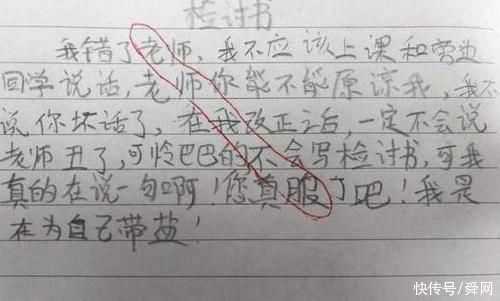 检讨书
我错了老师，我不应该上课和旁边
同学说话，老师你能不能原谅我，我不
说你坏话了，在我改正之后，一定不会说
老师丑了，可怜巴巴的不会写检讨书，可我
真的在说一句啊！您真服了吧！我是
在为自己带盐！
快传号/舜网